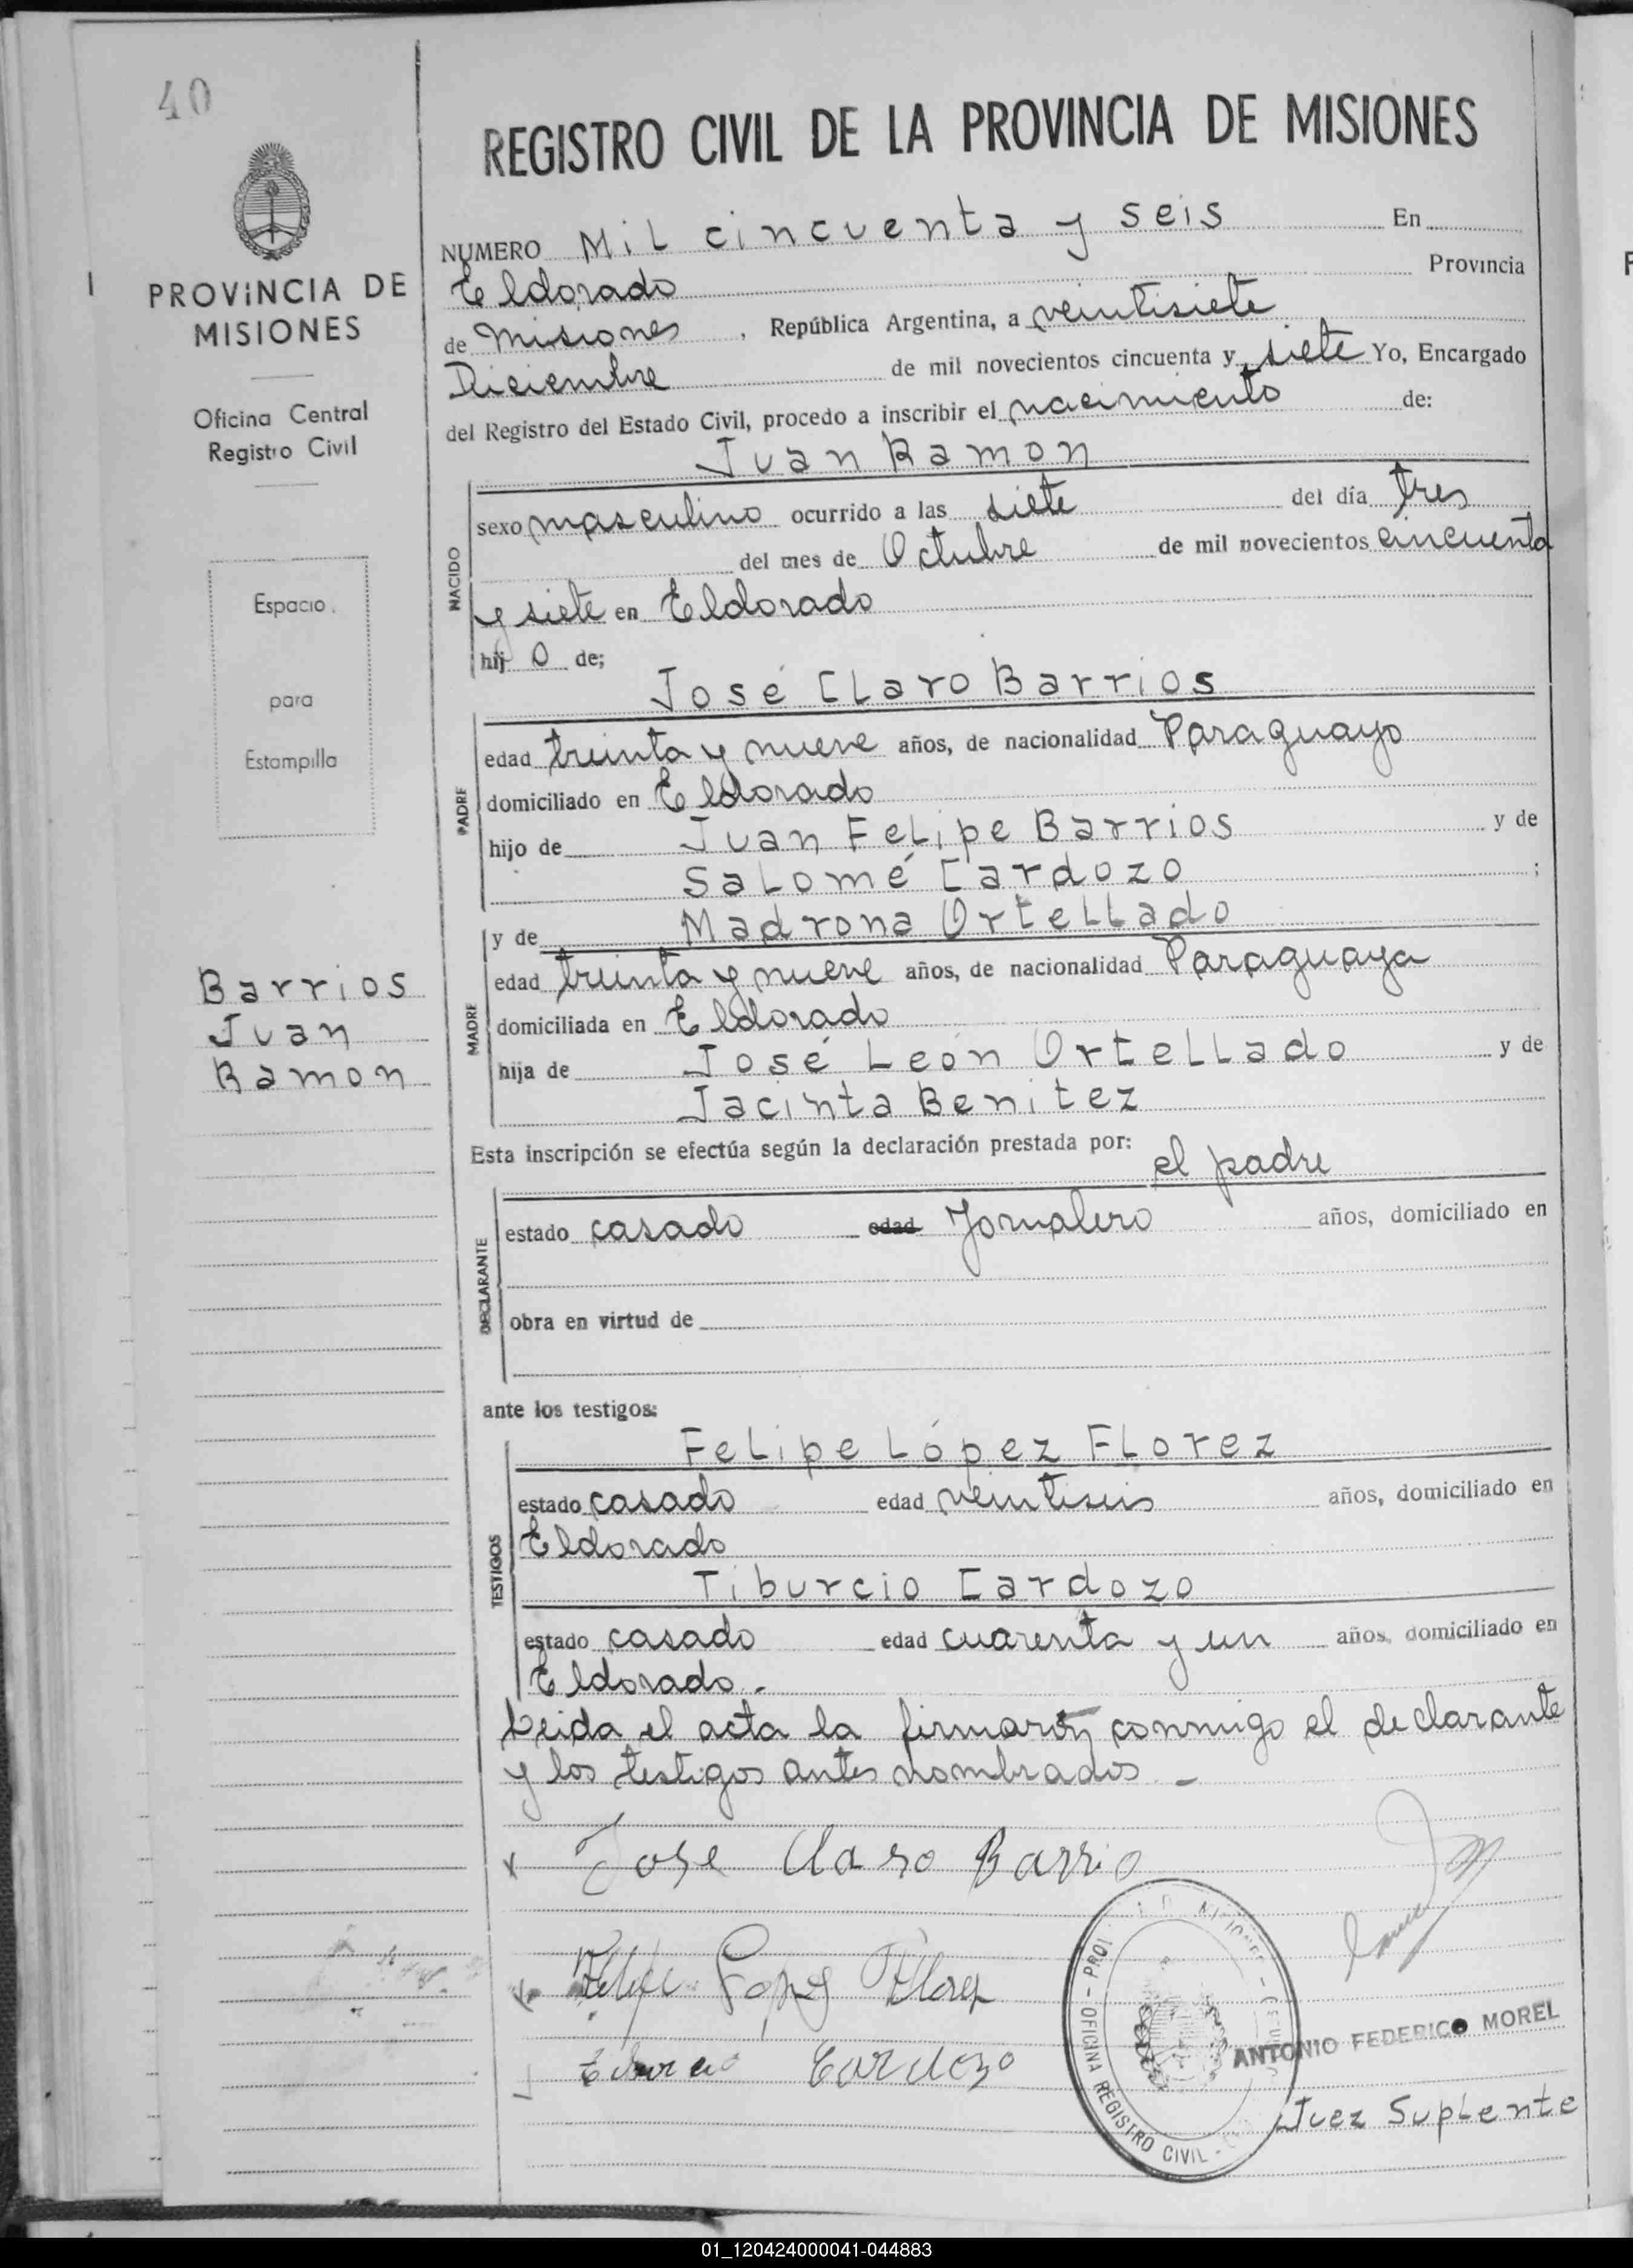 40
REGISTRO CIVIL DE LA PROVINCIA DE MISIONES
PROVINCIA DE
MISIONES
Oficina Central
Registro Civil
Espacio
para
Estampilla
Barrios
Juan
Ramon
NUMERO Mil cincuenta y seis En
Eldorado Provincia
de Misiones, República Argentina, a veintisiete
Diciembre de mil novecientos cincuenta y siete Yo, Encargado
del Registro del Estado Civil, procedo a inscribir el nacimiento de:
Juan Ramon
NACIDO
sexo masculino ocurrido a las siete del día tres
del mes de Octubre de mil novecientos cincuenta
y siete en Eldorado
hij o de;
José Claro Barrios
PADRE
edad treinta y nueve años, de nacionalidad Paraguayo
domiciliado en Eldorado
hijo de Juan Felipe Barrios y de
Salomé Cardozo ;
y de Madrona Ortellado
MADRE
edad treinta y nueve años, de nacionalidad Paraguaya
domiciliada en Eldorado
hija de José León Ortellado y de
Jacinta Benitez
Esta inscripción se efectúa según la declaración prestada por: el padre
DECLARANTE
estado casado edad Jornalero años, domiciliado en
obra en virtud de
ante los testigos:
Felipe López Florez
TESTIGOS
estado casado edad veintiseis años, domiciliado en
Eldorado
Tiburcio Cardozo
estado casado edad cuarenta y un años, domiciliado en
Eldorado.
Leida el acta la firmarón conmigo el declarante
y los testigos antes nombrados -
Jose Claro Barrio
Felipe Lopez Florez
Tiburcio Cardozo
OFICINA REGISTRO CIVIL
ANTONIO FEDERICO MOREL
Juez Suplente
01_120424000041-044883